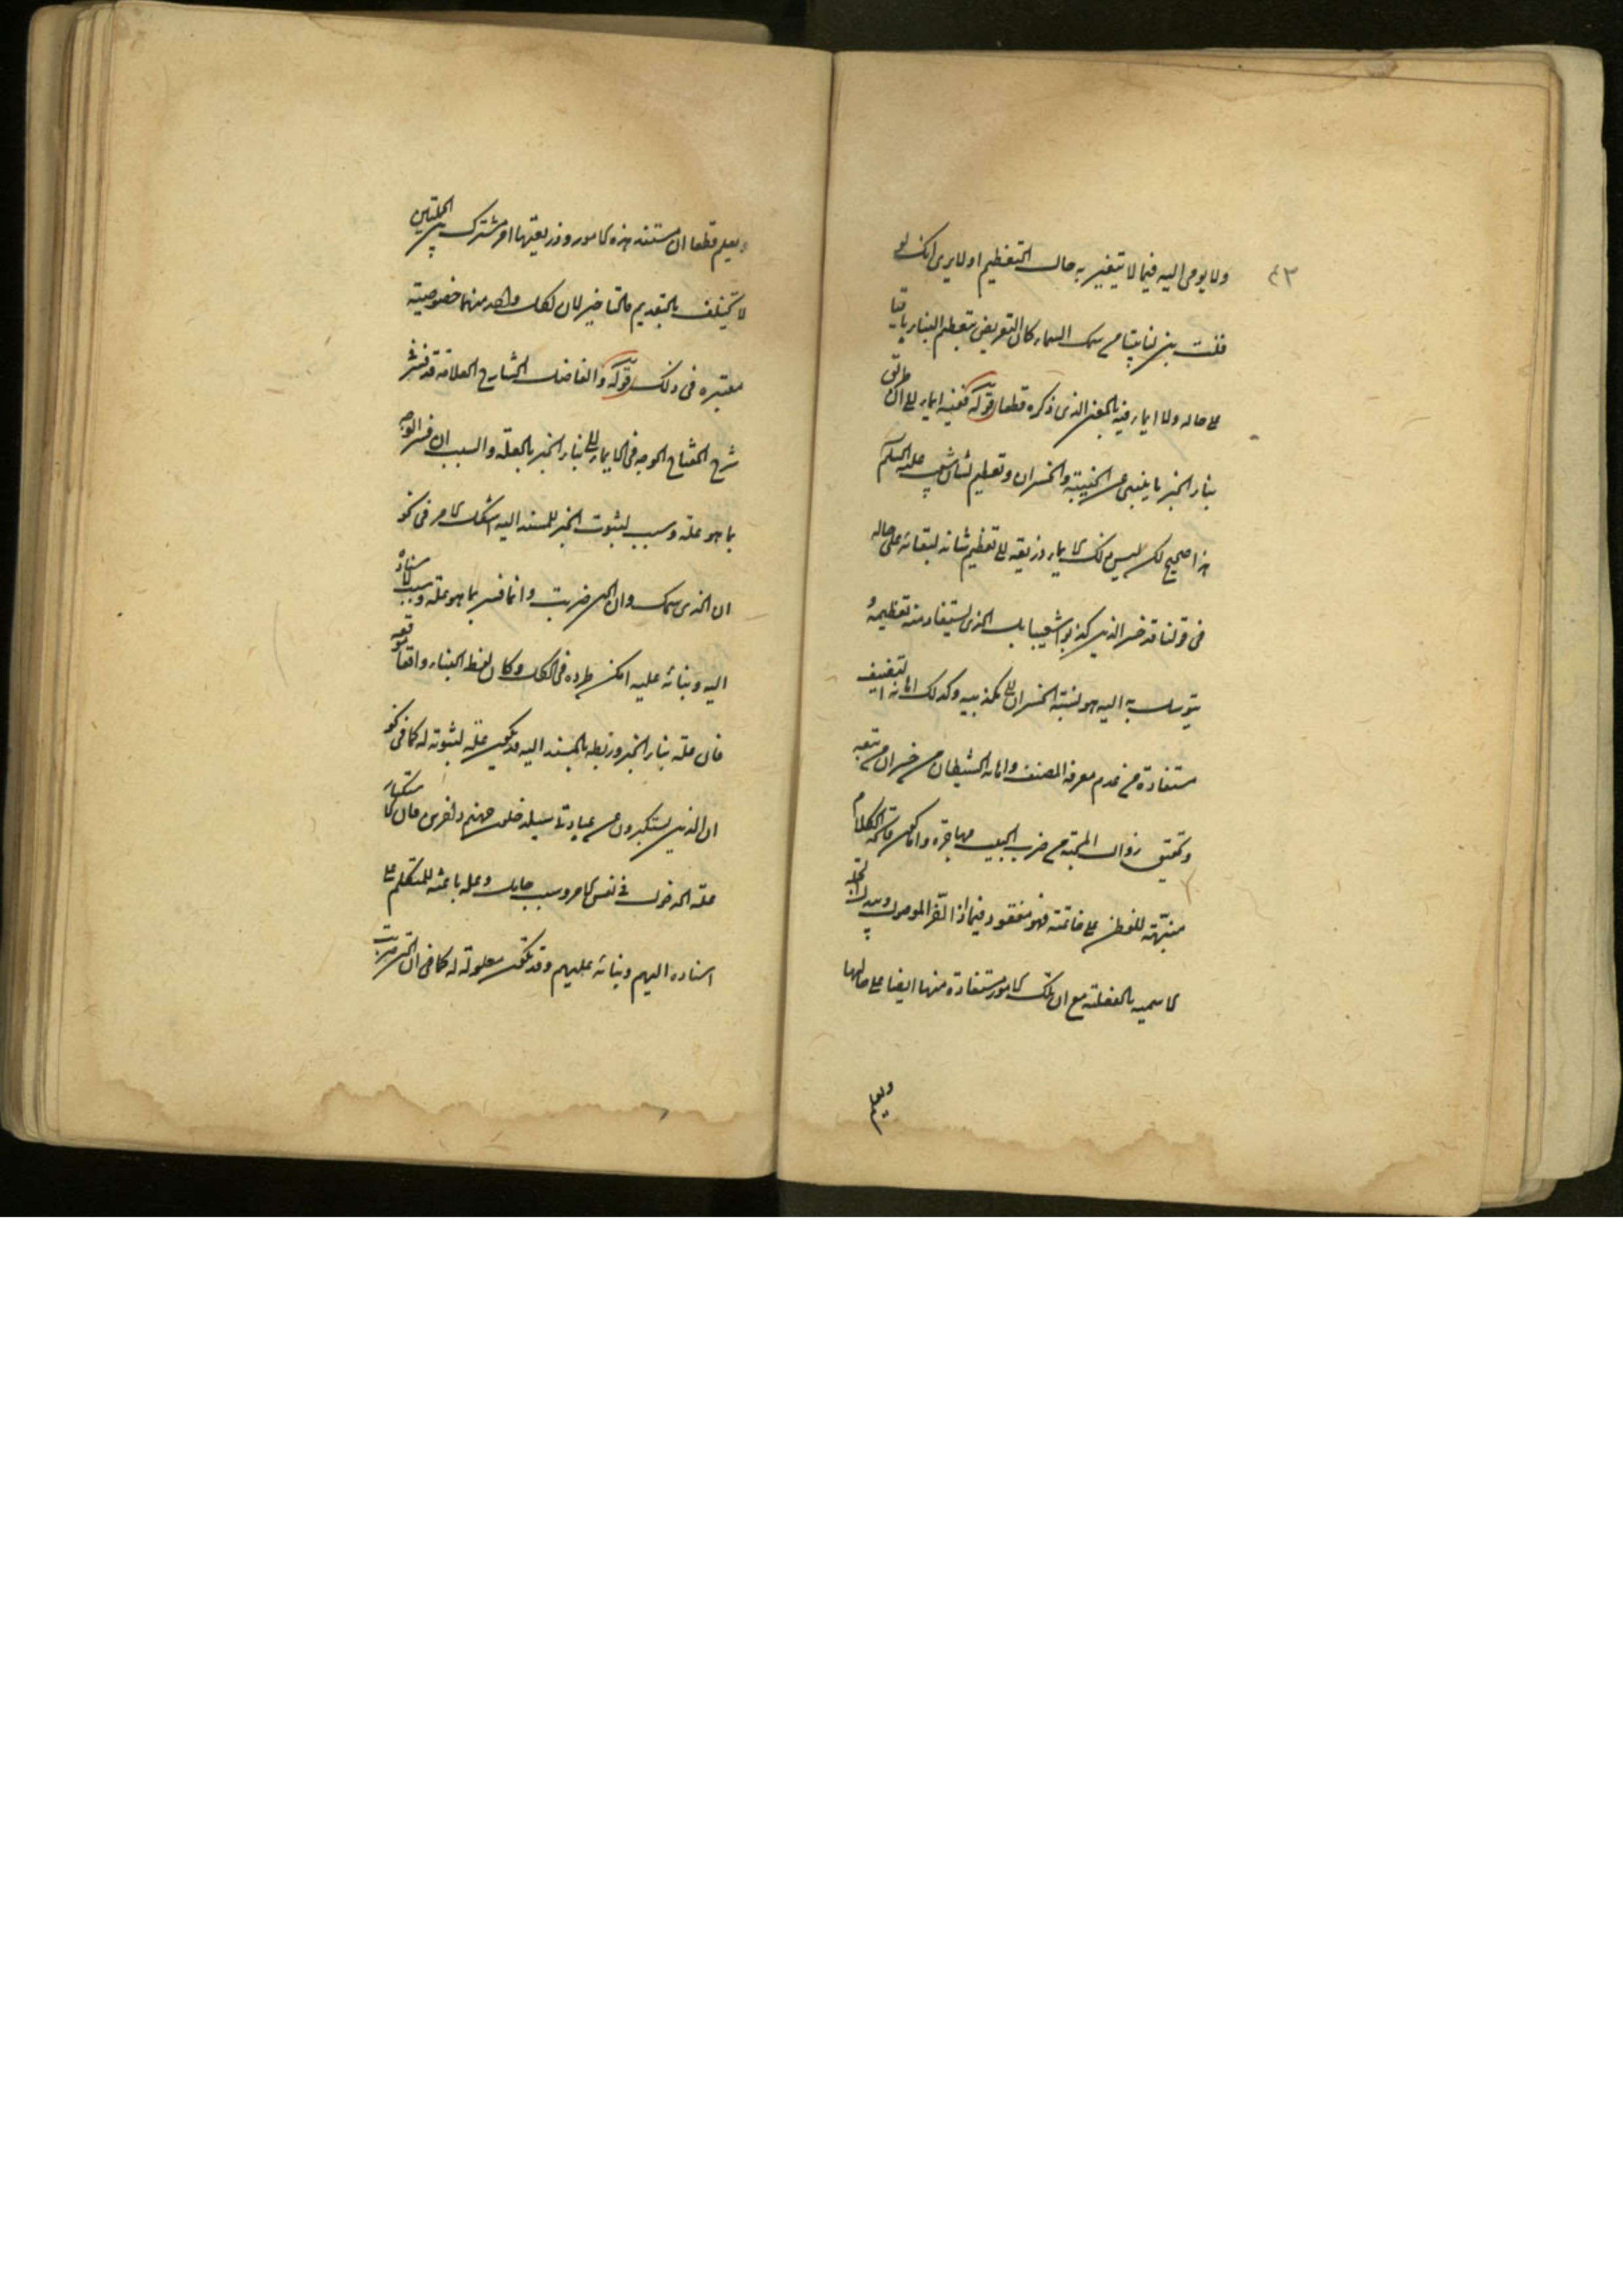 ولا يومى اليه فيما لا يتغير به حال التعظيم او لا يرى انك لو
قلت بنى لنا بيتا من سمك السماء كان التعريض بتعظيم البناء باقيا
على حاله ولا ايماء فيه بالمعنى الذى ذكره قطعا قوله ففيه ايماء الى ان طريق
بناء الخبر ما ينبئ عن الخيبة والخسران وتعظيم لشان شعيب عليه السلام
هذا صحيح لكن ليس ذلك الايماء ذريعة الى تعظيم شانه لبقائه على حاله
فى قولنا قد خسر الذين كذبوا شعيبا بل الذى يستفاد منه تعظيمه و
يتوسل به اليه هو نسبة الخسران الى مكذبيه وكذلك اهانة التصنيف
مستفادة من عدم معرفة المصنف واهانة الشيطان من خسران من تبعه
وتحقيق زوال المحبة من ضرب البيت مهاجرة واما كون فاتحة الكلام
منبهة للفطن على خاتمته فهو مفقود فيما اذا اخر الموصول وبدل الجملة
الاسمية بالفعلية مع ان تلك الامور مستفادة منها ايضا على حالها
ويعلم
ويعلم قطعا ان مستند هذه الامور وذريعتها امر مشترك بين الجملتين
لا تختلف بالتقديم والتاخير لان لكل واحد منهما خصوصية
معتبرة فى ذلك قوله والفاضل الشارح العلامة قد فسر فى
شرح المفتاح الوجه فى الايماء الى بناء الخبر بالعلة والسبب ان فسر الوجه
بما هو علة وسبب لثبوت الخبر للمسند اليه اشكل الامر فى نحو
ان الذى سمك وان التى ضربت وانما فسر بما هو علة وسبب لاسناده
اليه وبنائه عليه امكن طرده فى الكل وكان لفظ البناء واقعا موقعه
فان علة بناء الخبر وربطه بالمسند اليه قد يكون علة لثبوته له كما فى نحو
ان الذين يستكبرون عن عبادتى سيدخلون جهنم داخرين فان الاستكبار
علة الدخول فى نفس الامر وسبب حامل وعلة باعثة للمتكلم على
اسناده اليهم وبنائه عليهم وقد تكون معلولة له كما فى ان التى ضربت